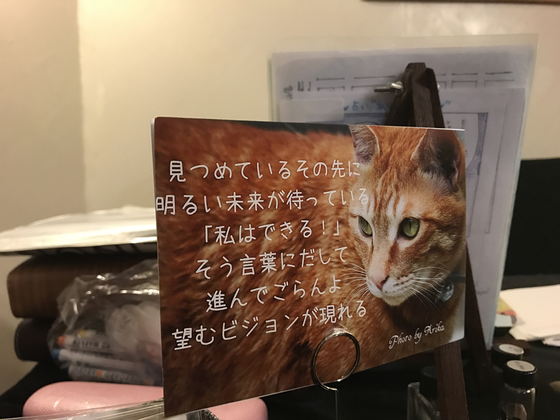 見つめているその先に
明るい未来が待っている
「私はできる！」
そう言葉にだして
進んでごらんよ
望むビジョンが現れる
Photo by Arika